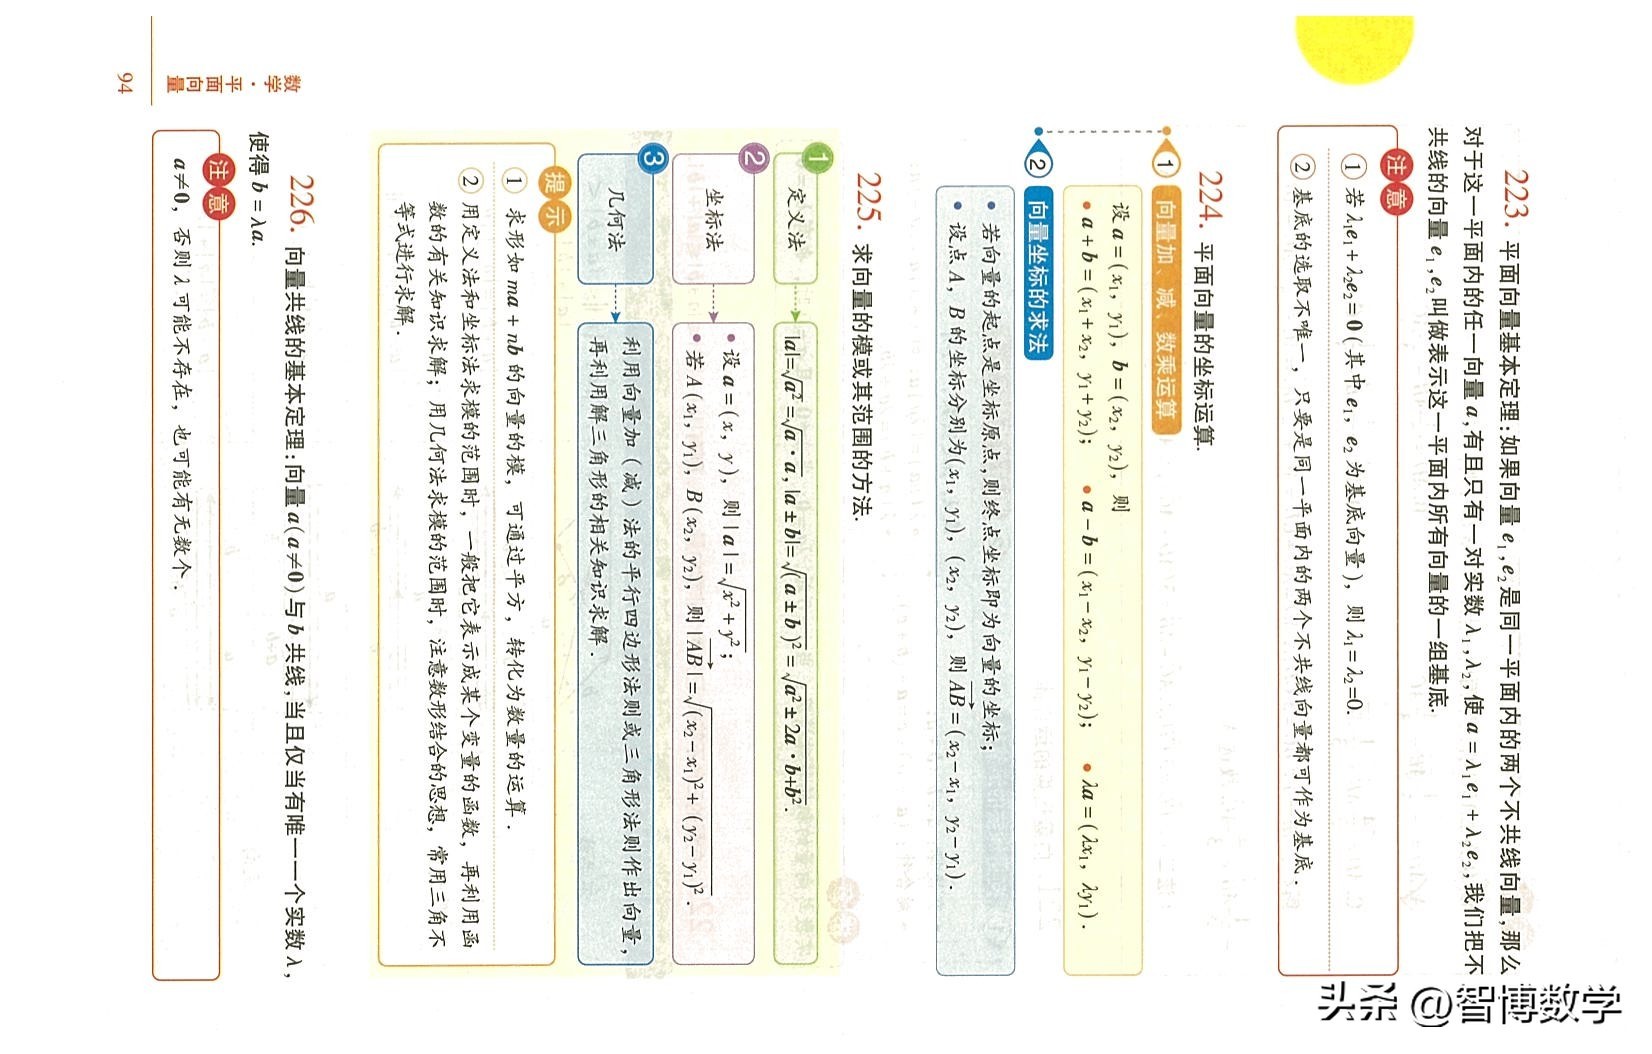 223. 平面向量基本定理:如果向量 e₁,e₂是同一平面内的两个不共线向量,那么
对于这一平面内的任一向量 a,有且只有一对实数 λ₁,λ₂,使 a=λ₁e₁+λ₂e₂,我们把不
共线的向量 e₁,e₂叫做表示这一平面内所有向量的一组基底.
注意
① 若 λ₁e₁+λ₂e₂=0(其中 e₁，e₂ 为基底向量)，则 λ₁=λ₂=0.
② 基底的选取不唯一，只要是同一平面内的两个不共线向量都可作为基底.
224. 平面向量的坐标运算.
1 向量加、减、数乘运算
设 a=(x₁, y₁), b=(x₂, y₂), 则
• a+b=(x₁+x₂, y₁+y₂); • a-b=(x₁-x₂, y₁-y₂); • λa=(λx₁, λy₁).
2 向量坐标的求法
• 若向量的起点是坐标原点,则终点坐标即为向量的坐标;
• 设点 A，B 的坐标分别为(x₁, y₁), (x₂, y₂), 则 →AB=(x₂-x₁, y₂-y₁).
225. 求向量的模或其范围的方法.
1 定义法
|a|=√a²=√a·a, |a±b|=√(a±b)²=√a²±2a·b+b².
2 坐标法
• 设 a=(x, y), 则 |a|=√x²+y²;
• 若 A(x₁, y₁), B(x₂, y₂), 则 |→AB|=√(x₂-x₁)²+(y₂-y₁)².
3 几何法
利用向量加(减)法的平行四边形法则或三角形法则作出向量,
再利用解三角形的相关知识求解.
提示
① 求形如 ma+nb 的向量的模，可通过平方，转化为数量的运算.
② 用定义法和坐标法求模的范围时，一般把它表示成某个变量的函数，再利用函
数的有关知识求解；用几何法求模的范围时，注意数形结合的思想，常用三角不
等式进行求解.
226. 向量共线的基本定理:向量 a(a≠0)与 b 共线,当且仅当有唯一一个实数 λ,
使得 b=λa.
注意
a≠0，否则 λ 可能不存在，也可能有无数个.
数学·平面向量
94
头条 @智博数学